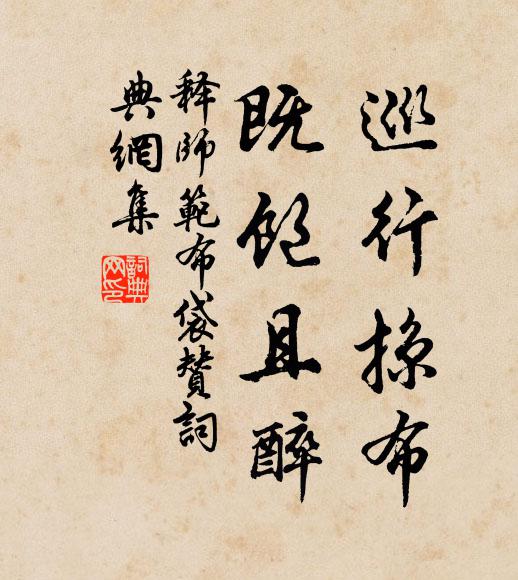 巡行掠布
既飽且醉
释師範布袋賛詞
典網集
詞典
网印